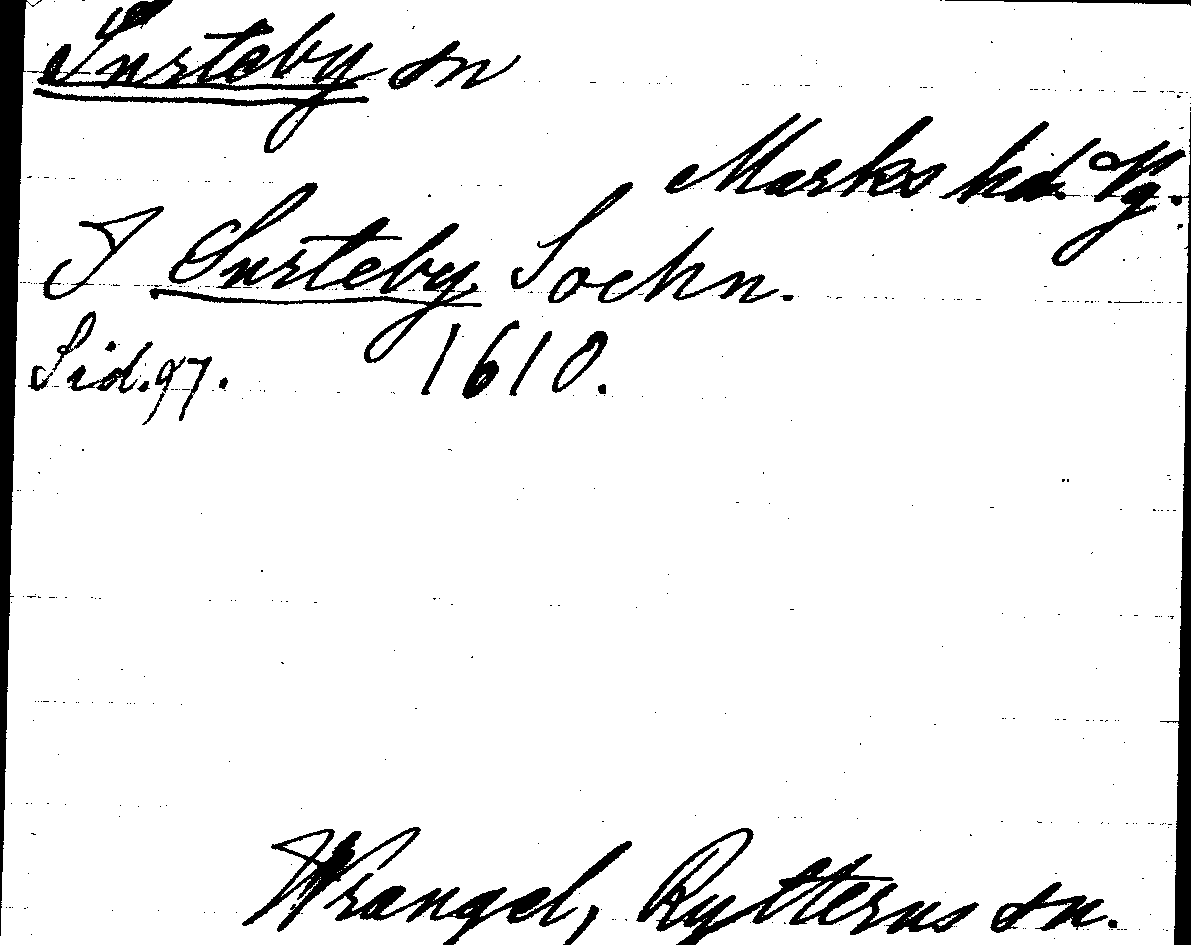 Surteby sn
Marks hd. Vg.
J Surteby Sochn.
Sid. 97. 1610.
Wrangel, Rytterns sn.